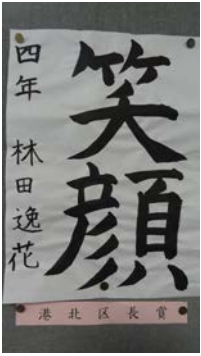 笑顔
四年 林田逸花
港北区長賞